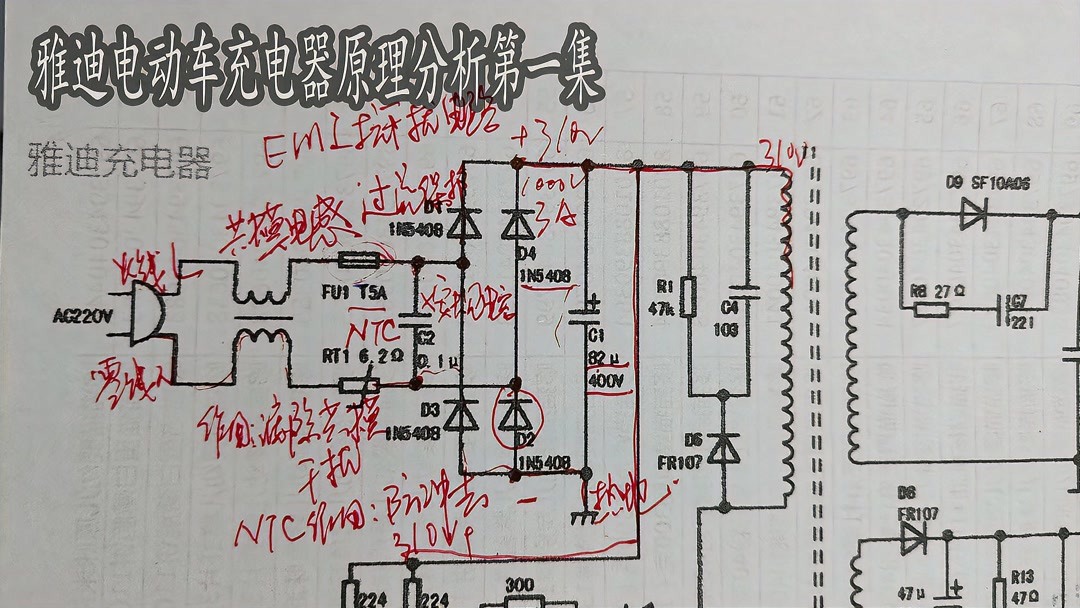 雅迪电动车充电器原理分析第一集
雅迪充电器
EMI抗干扰电路
+310V
310V
1000V
3A
过流保护
共模电感
火线L
零线N
AC220V
FU1 T5A
NTC
RT1 6.2Ω
C2
0.1μ
D1
1N5408
D4
1N5408
D3
1N5408
D2
1N5408
C1
82μ
400V
R1
47k
C4
103
D6
FR107
D9 SF10A06
R8 27Ω
C7
221
D8
FR107
47μ
R13
47Ω
作用:滤除共模
干扰
NTC作用:防冲击
-
热地
310V
224
224
300